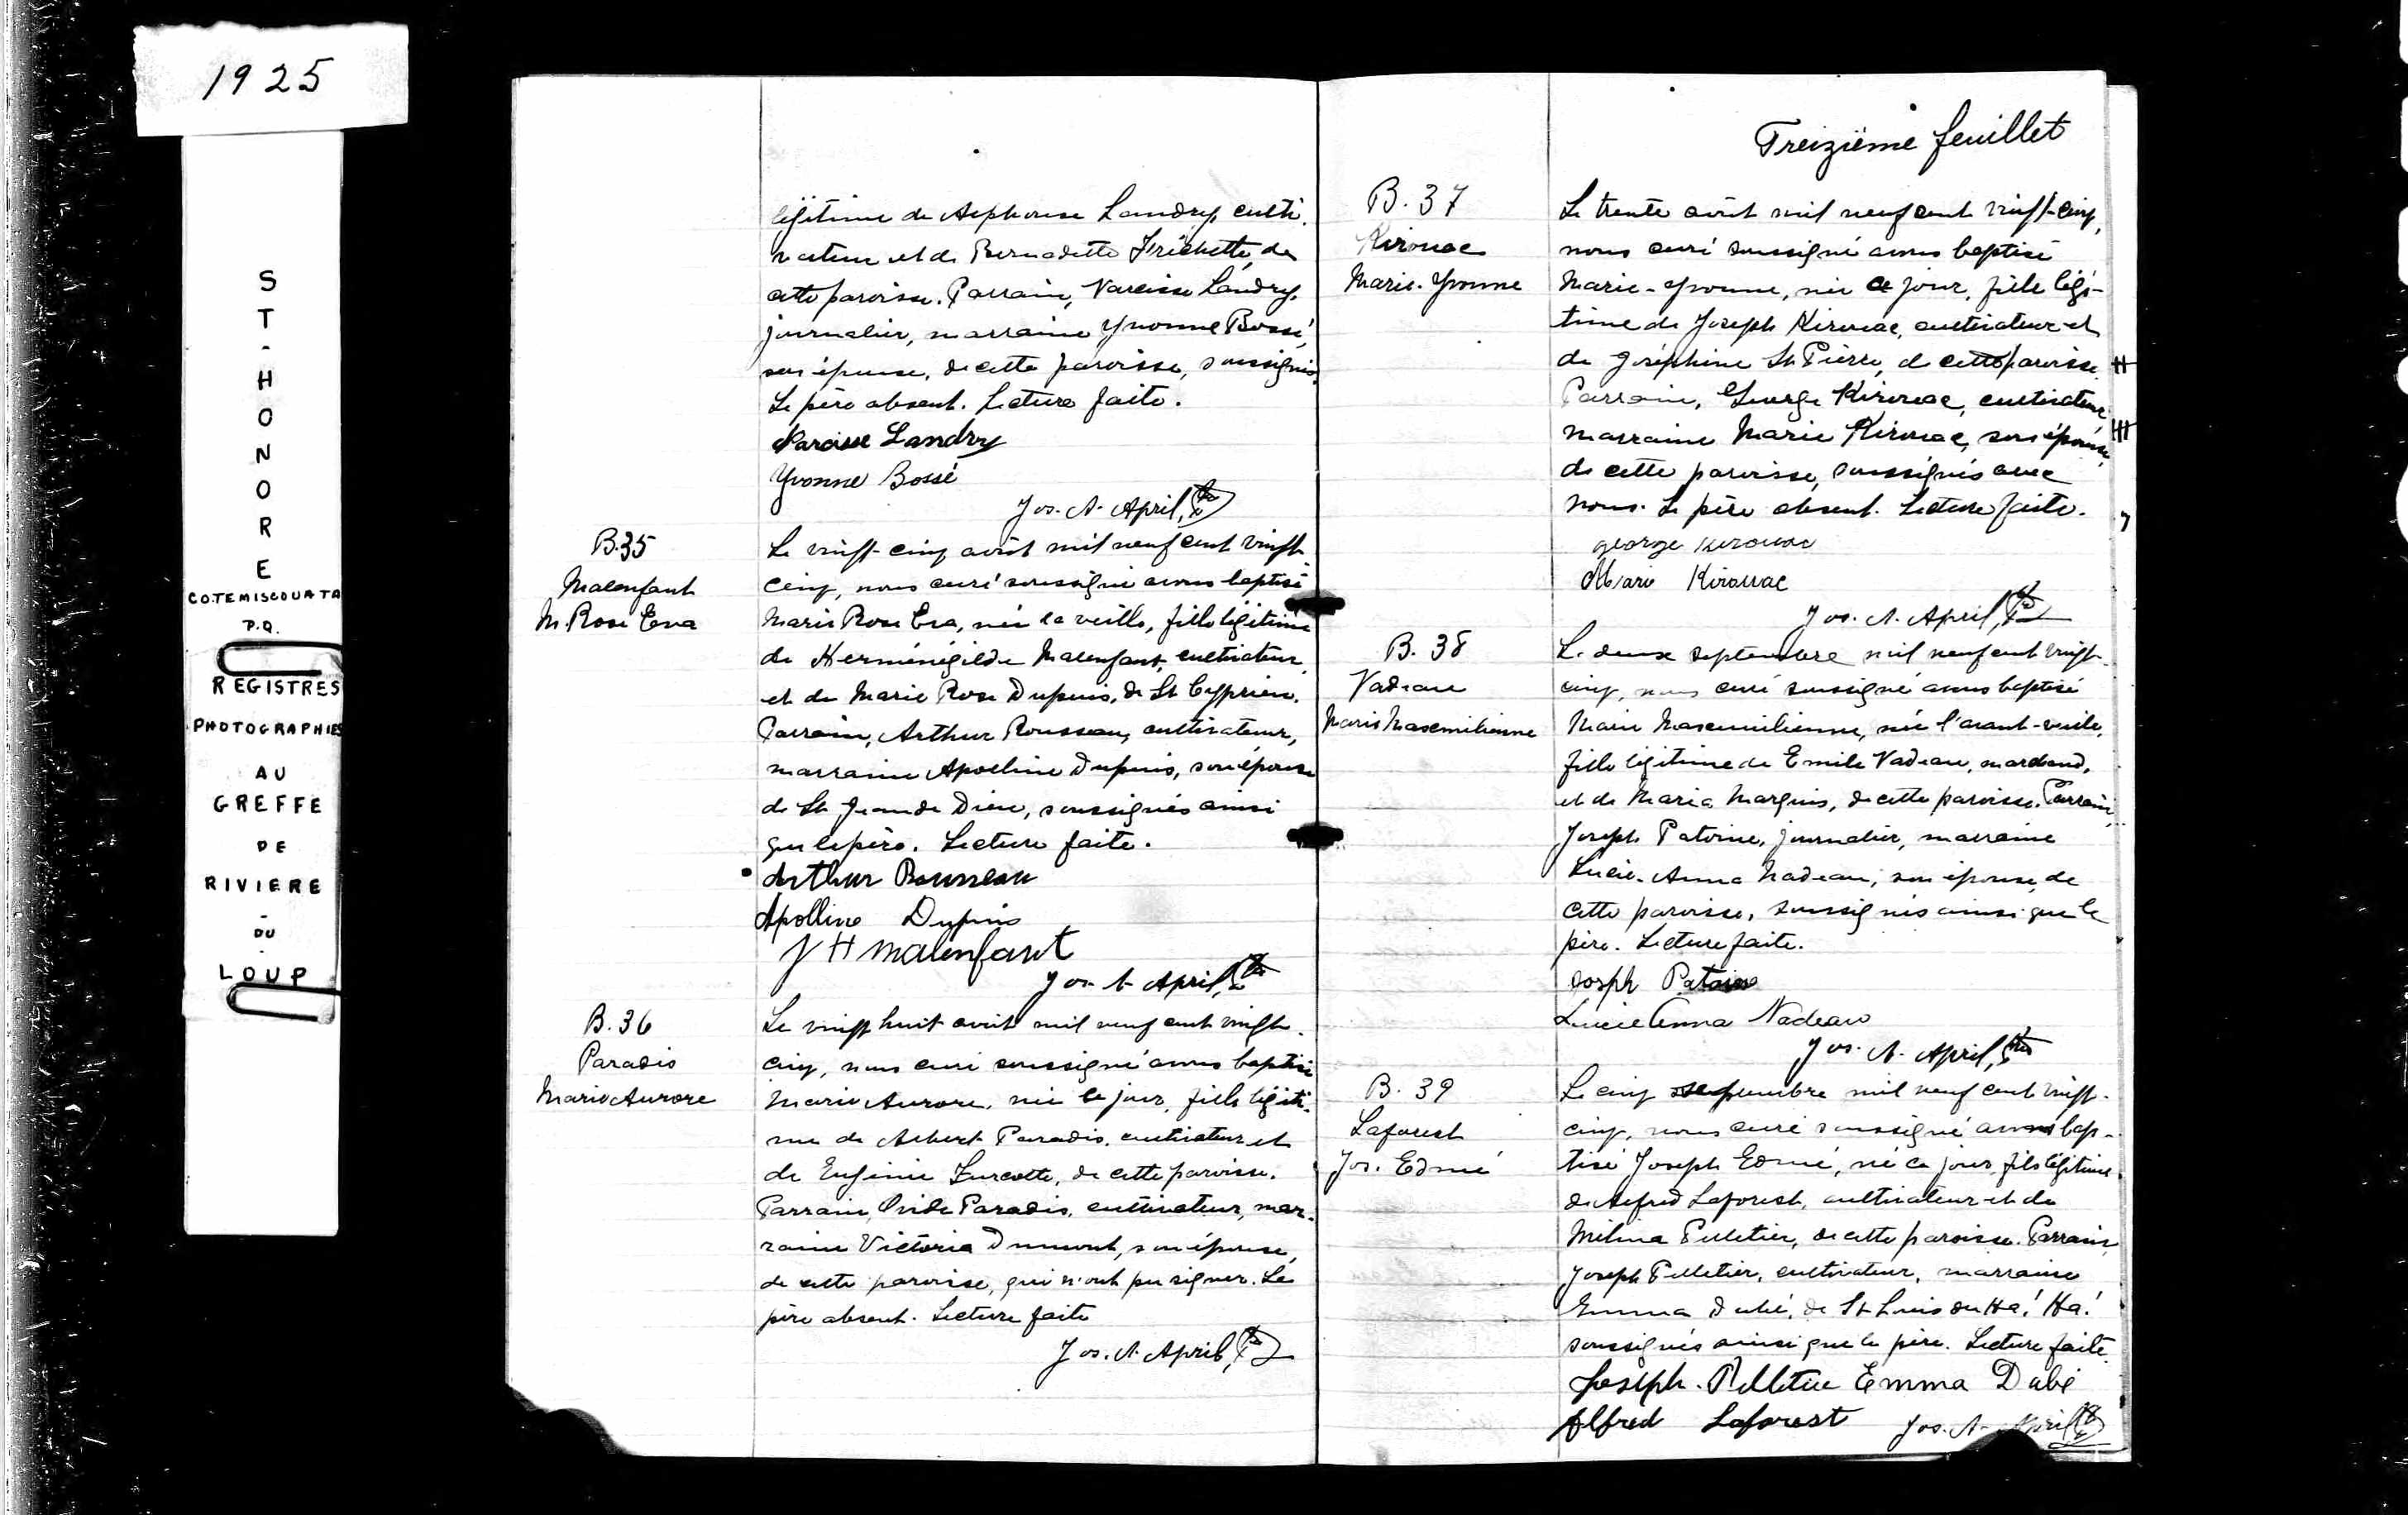 1925
ST-HONORE
COTEMISCOUATA
P.Q.
REGISTRES
PHOTOGRAPHIES
AU
GREFFE
DE
RIVIERE
-
DU
-
LOUP
légitime de Alphonse Landry, culti-
vateur et de Bernadette Fréchette, de
cette paroisse. Parrain, Narcisse Landry,
journalier, marraine Yvonne Bossé,
son épouse, de cette paroisse, soussignés.
Le père absent. Lecture faite.
Narcisse Landry
Yvonne Bossé
Jos. A. April, Ptre
B.35
Malenfant
M. Rose Eva
Le vingt-cinq août mil neuf cent vingt-
cinq, nous curé soussigné avons baptisé
Marie Rose Eva, née la veille, fille légitime
de Herménégilde Malenfant, cultivateur,
et de Marie Rose Dupuis, de St Cyprien.
Parrain, Arthur Rousseau, cultivateur,
marraine Apolline Dupuis, son épouse
de St Jean de Dieu, soussignés ainsi
que le père. Lecture faite.
Arthur Rousseau
Apolline Dupuis
J H Malenfant
Jos. A. April, Ptre
B. 36
Paradis
Marie Aurore
Le vingt huit août mil neuf cent vingt-
cinq, nous curé soussigné avons baptisé
Marie Aurore, née ce jour, fille légiti-
me de Albert Paradis, cultivateur et
de Eugénie Turcotte, de cette paroisse.
Parrain, Ovide Paradis, cultivateur, mar-
raine Victoria Dumont, son épouse,
de cette paroisse, qui n'ont pu signer. Le
père absent. Lecture faite
Jos. A. April, Ptre
Treizième feuillet
B. 37
Kirouac
Marie-Yvonne
Le trente août mil neuf cent vingt-cinq,
nous curé soussigné avons baptisé
Marie-Yvonne, née ce jour, fille légi-
time de Joseph Kirouac, cultivateur et
de Joséphine St Pierre, de cette paroisse.
Parrain, George Kirouac, cultivateur
marraine Marie Kirouac, son épouse,
de cette paroisse, soussignés avec
nous. Le père absent. Lecture faite.
george kirouac
Marie Kirouac
Jos. A. April, Ptre
B. 38
Nadeau
Marie Maxemilienne
Le deux septembre mil neuf cent vingt-
cinq, nous curé soussigné avons baptisé
Marie Maxemilienne, née l'avant-veille,
fille légitime de Emile Nadeau, marchand,
et de Maria Marquis, de cette paroisse. Parrain,
Joseph Patoine, journalier, marraine
Lucie-Anna Nadeau, son épouse, de
cette paroisse, soussignés ainsi que le
père. Lecture faite.
Josph Patoine
Lucie Anna Nadeau
Jos. A. April, Ptre
B. 39
Laforest
Jos. Edmé
Le cinq septembre mil neuf cent vingt-
cinq, nous curé soussigné avons bap-
tisé Joseph Edmé, né ce jour, fils légitime
de Alfred Laforest, cultivateur et de
Mélina Pelletier, de cette paroisse. Parrain,
Joseph Pelletier, cultivateur, marraine
Emma Dubé, de St Louis du Ha! Ha!
soussignés ainsi que le père. Lecture faite.
Joseph. Pelletier Emma Dubé
Alfred Laforest Jos. A. April Ptre